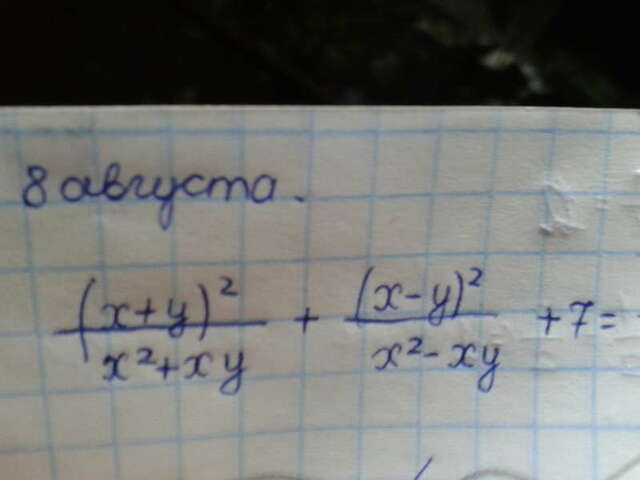 8 августа.
(x+y)²/x²+xy + (x-y)²/x²-xy +7=